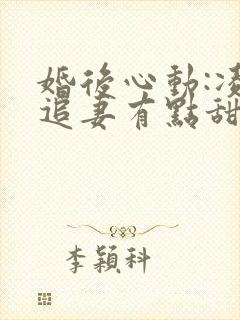 婚後心動:
追妻有點甜
李穎科